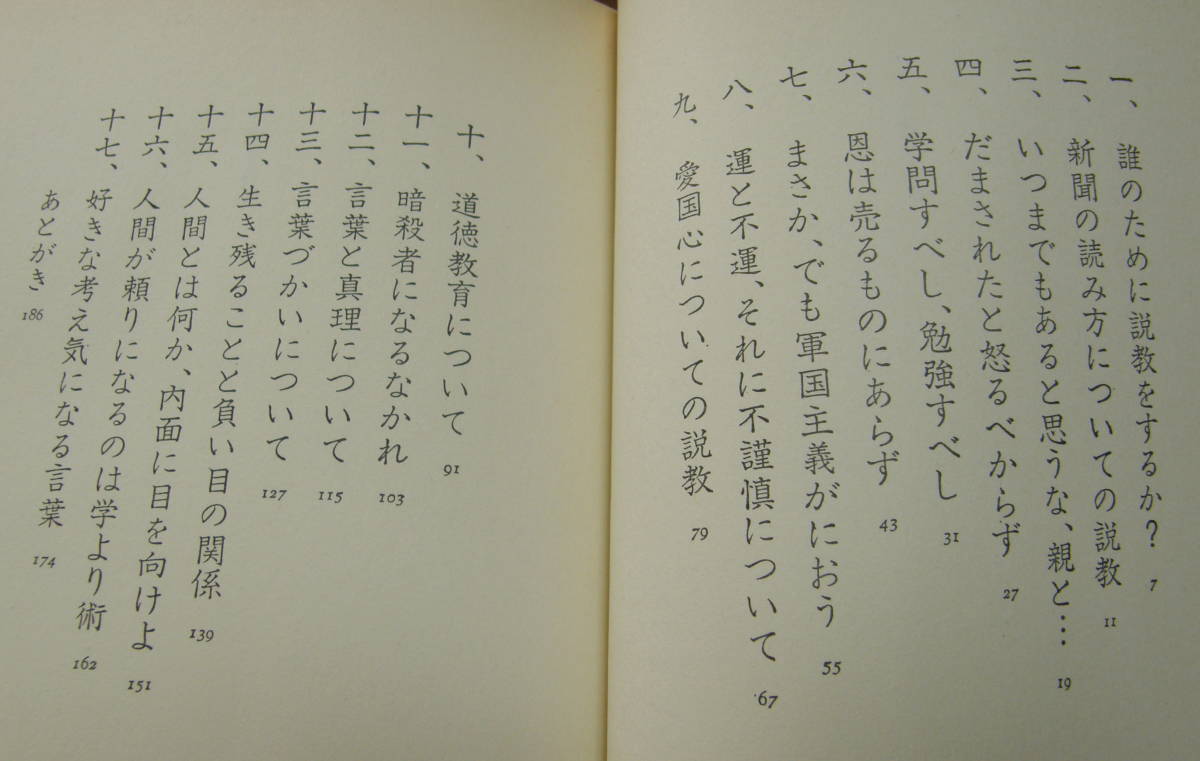 一、誰のために説教をするか? 7
二、新聞の読み方についての説教 11
三、いつまでもあると思うな、親と… 19
四、だまされたと怒るべからず 27
五、学問すべし、勉強すべし 31
六、恩は売るものにあらず 43
七、まさか、でも軍国主義がにおう 55
八、運と不運、それに不謹慎について 67
九、愛国心についての説教 79
十、道徳教育について 91
十一、暗殺者になるなかれ 103
十二、言葉と真理について 115
十三、言葉づかいについて 127
十四、生き残ることと負い目の関係 139
十五、人間とは何か、内面に目を向けよ 151
十六、人間が頼りになるのは学より術 162
十七、好きな考え気になる言葉 174
あとがき 186